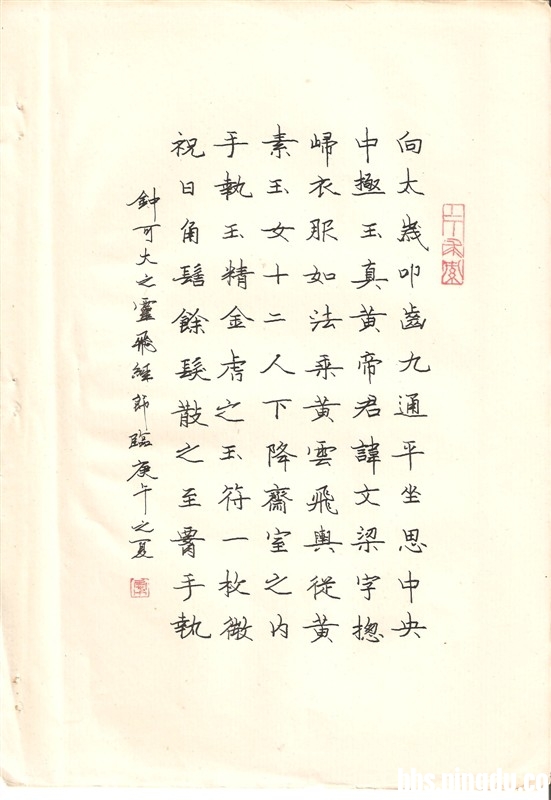 向太歲叩齒九通平坐思中央
中極玉真黃帝君諱文梁字㧾
歸衣服如法乘黃雲飛輿從黃
素玉女十二人下降齋室之內
手執玉精金虎之玉符一枚微
祝曰角髻餘髮散之至署手執
鍾可大之靈飛經節臨庚午之夏
bbs.ningdu.co